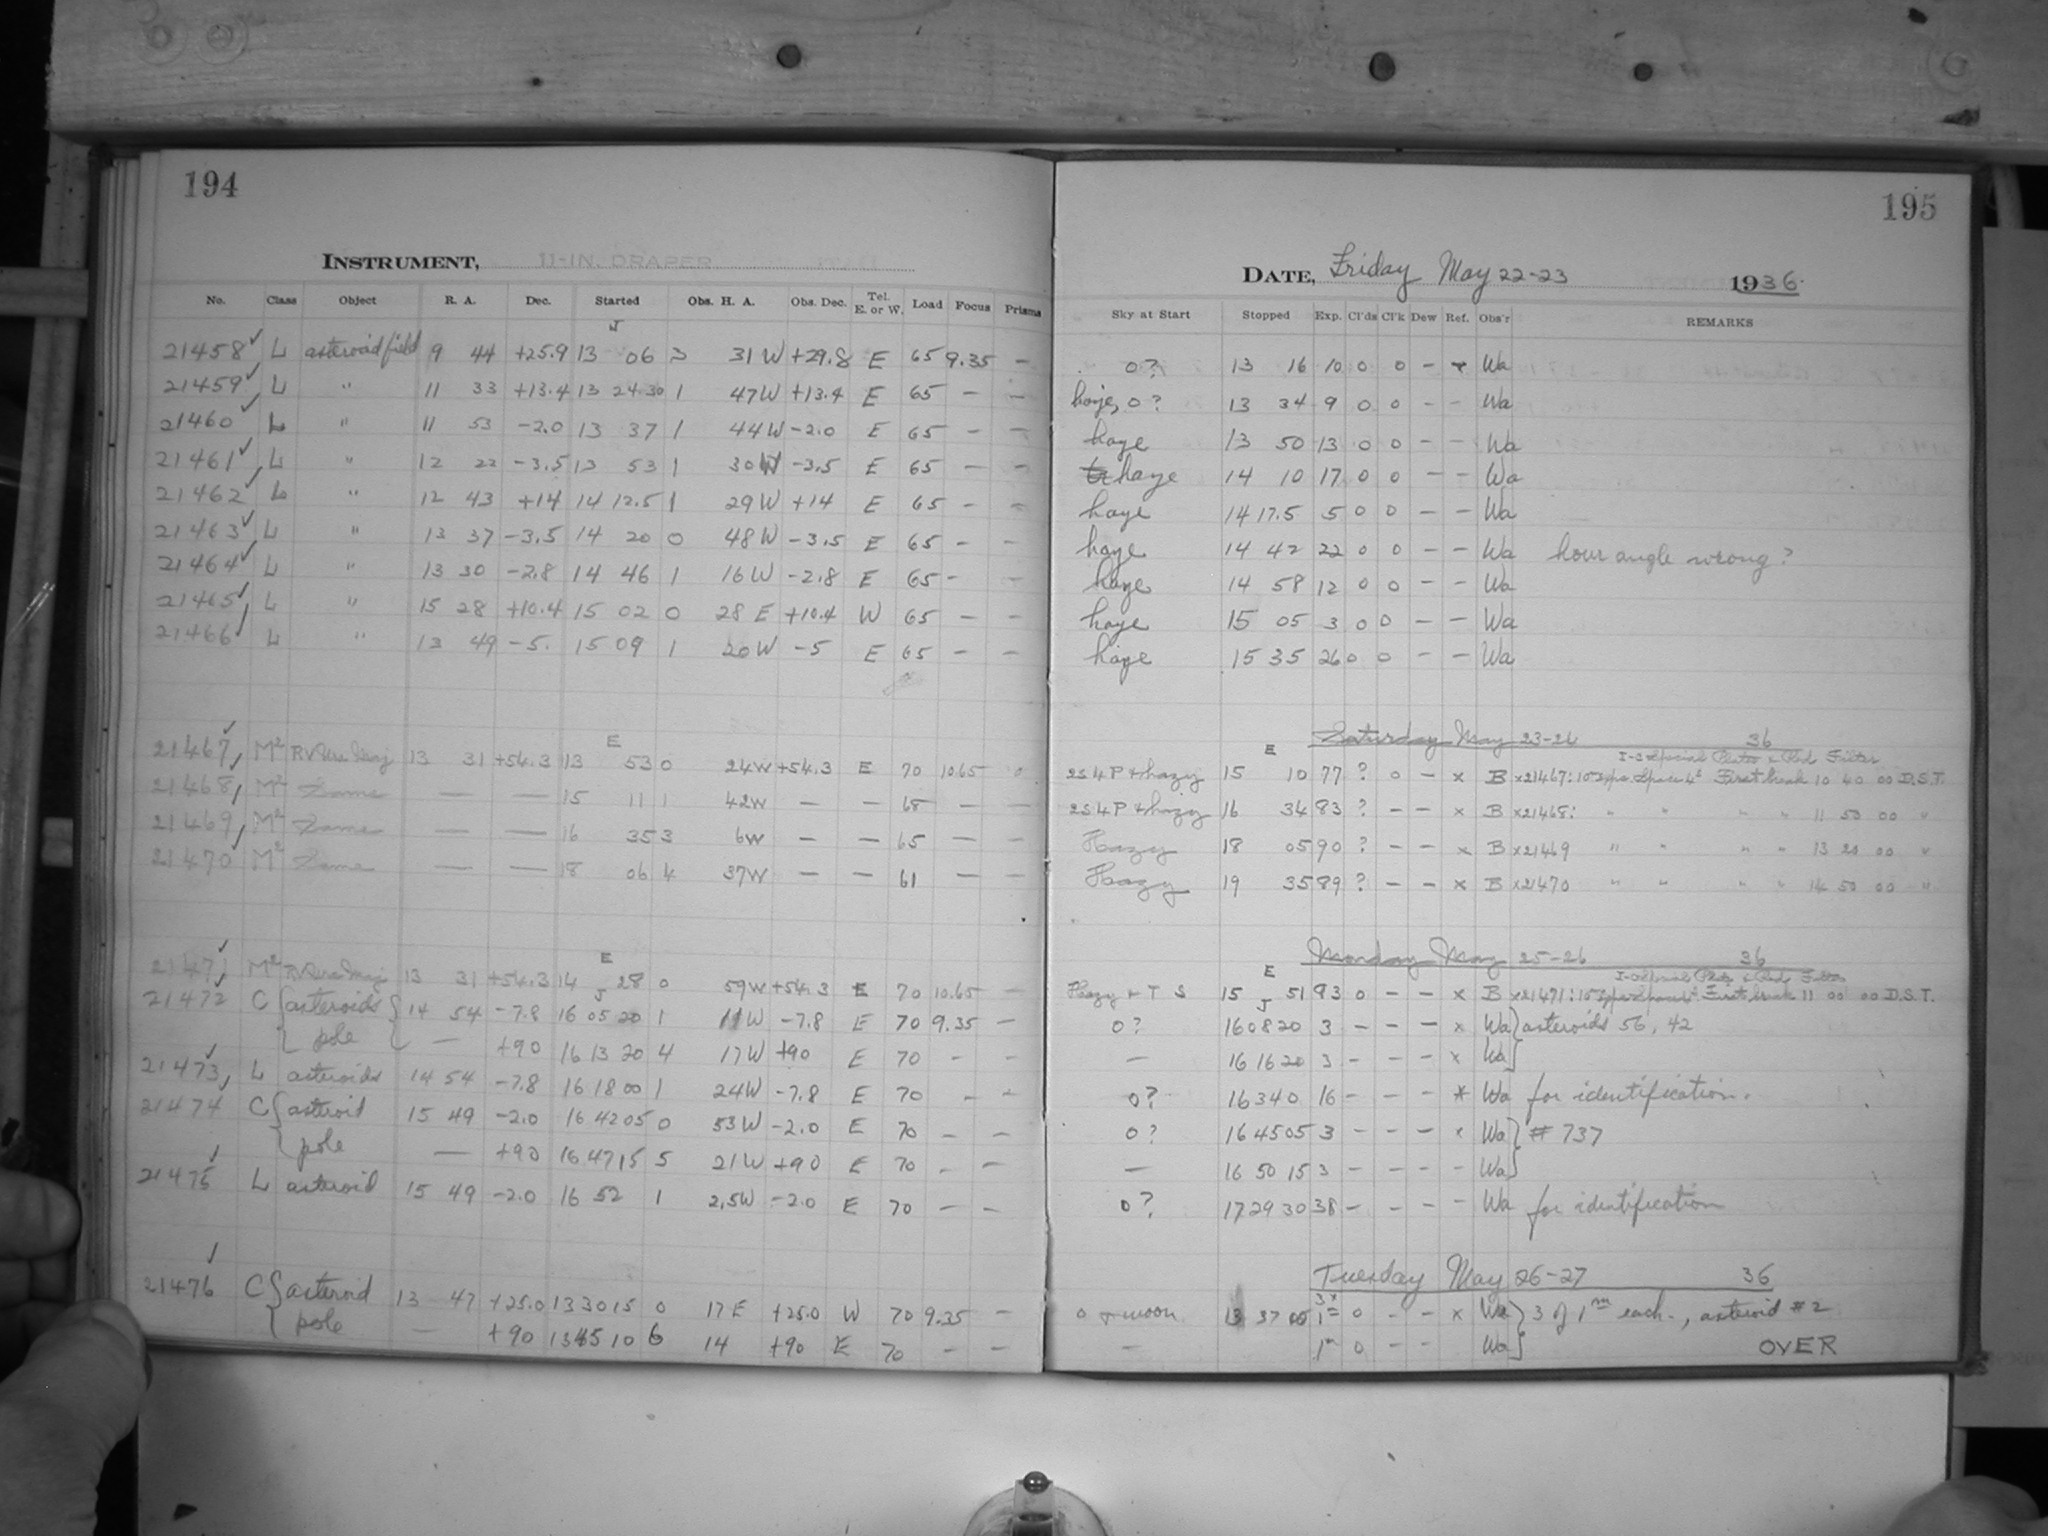 194
INSTRUMENT, 11-IN. DRAPER
No. Class Object R. A. Dec. Started Obs. H. A. Obs. Dec. Tel. E. or W. Load Focus Prisms
J
21458 ✓ L asteroid field 9 44 +25.9 13 06 3 31 W +29.8 E 65 9.35 —
21459 ✓ L " 11 33 +13.4 13 24 30 1 47 W +13.4 E 65 — —
21460 ✓ L " 11 53 -2.0 13 37 1 44 W -2.0 E 65 — —
21461 ✓ L " 12 22 -3.5 13 53 1 30 W -3.5 E 65 — —
21462 ✓ L " 12 43 +14 14 12.5 1 29 W +14 E 65 — —
21463 ✓ L " 13 37 -3.5 14 20 0 48 W -3.5 E 65 — —
21464 ✓ L " 13 30 -2.8 14 46 1 16 W -2.8 E 65 — —
21465 ✓ L " 15 28 +10.4 15 02 0 28 E +10.4 W 65 — —
21466 ✓ L " 13 49 -5. 15 09 1 20 W -5 E 65 — —
E
21467 ✓ M² RV Ursa Maj 13 31 +54.3 13 53 0 24 W +54.3 E 70 10.65
21468, M² Same — — 15 11 1 42 W — — 68 — —
21469, M² Same — — 16 35 3 6 W — — 65 — —
21470 M² Same — — 18 06 4 37 W — — 61 — —
E
21471 ✓ M² RV Ursa Maj 13 31 +54.3 14 28 0 59 W +54.3 E 70 10.65 —
J
21472 C { asteroids { 14 54 -7.8 16 05 20 1 11 W -7.8 E 70 9.35 —
pole — +90 16 13 20 4 17 W +90 E 70 — —
21473 ✓, L asteroids 14 54 -7.8 16 18 00 1 24 W -7.8 E 70 — —
21474 C { asteroid 15 49 -2.0 16 42 05 0 53 W -2.0 E 70 — —
pole — +90 16 47 15 5 21 W +90 E 70 — —
21475 ✓ L asteroid 15 49 -2.0 16 52 1 2.5 W -2.0 E 70 — —
21476 ✓ C { asteroid 13 47 +25.0 13 30 15 0 17 E +25.0 W 70 9.35 —
pole — +90 13 45 10 6 14 +90 E 70 — —
195
DATE, Friday May 22-23 1936.
Sky at Start Stopped Exp. Cl'ds Cl'k Dew Ref. Obs'r REMARKS
0? 13 16 10 0 0 — Wa
haze, 0? 13 34 9 0 0 — — Wa
haze 13 50 13 0 0 — — Wa
haze 14 10 17 0 0 — — Wa
haze 14 17.5 5 0 0 — — Wa
haze 14 42 22 0 0 — — Wa hour angle wrong?
haze 14 58 12 0 0 — — Wa
haze 15 05 3 0 0 — — Wa
haze 15 35 26 0 0 — — Wa
Saturday May 23-24 36
I-C Special Plates & Red Filter
E
2S4P + hazy 15 10 77 ? 0 — x B x21467: First break 10 40 00 D.S.T.
2S4P + hazy 16 34 83 ? — — x B x21468: " " " " 11 50 00 "
Hazy 18 05 90 ? — — x B x21469 " " " " 13 20 00 "
Hazy 19 35 89 ? — — x B x21470 " " " " 14 50 00 "
Monday May 25-26 36
I-C Special Plate & Red Filter
E
Hazy + T S 15 51 93 0 — — x B x21471: First break 11 00 00 D.S.T.
J
0? 16 08 20 3 — — — x Wa } asteroids 56, 42
— 16 16 20 3 — — — x Wa }
0? 16 34 0 16 — — — x Wa for identification.
0? 16 45 05 3 — — — x Wa } # 737
— 16 50 15 3 — — — — Wa }
0? 17 29 30 38 — — — — Wa for identification
Tuesday May 26-27 36
0 + moon 13 37 05 3x 1m 0 — — x Wa } 3 of 1m each., asteroid # 2
— 1m 0 — — Wa }
OVER